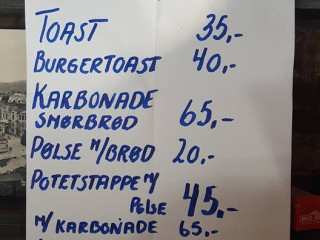 TOAST 35,-
BURGERTOAST 40,-
KARBONADE
SMØRBRØD 65,-
PØLSE M/BRØD 20,-
POTETSTAPPE M/
PØLSE 45,-
M/KARBONADE 65,-